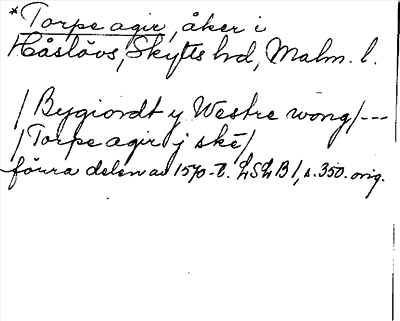 *Torpe agir, åker i
Håslövs, Skytts hrd, Malm. l.
/ Bygiordt y Westre wong/---
/ Torpe agir j ske/
förra delen av 1570-t. LSLB 1, s. 350. orig.